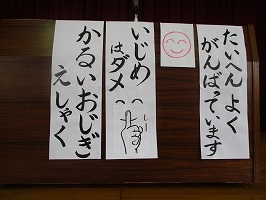 たいへんよく
がんばっています
いじめ
はダメ
しー
かるいおじぎ
えしゃく